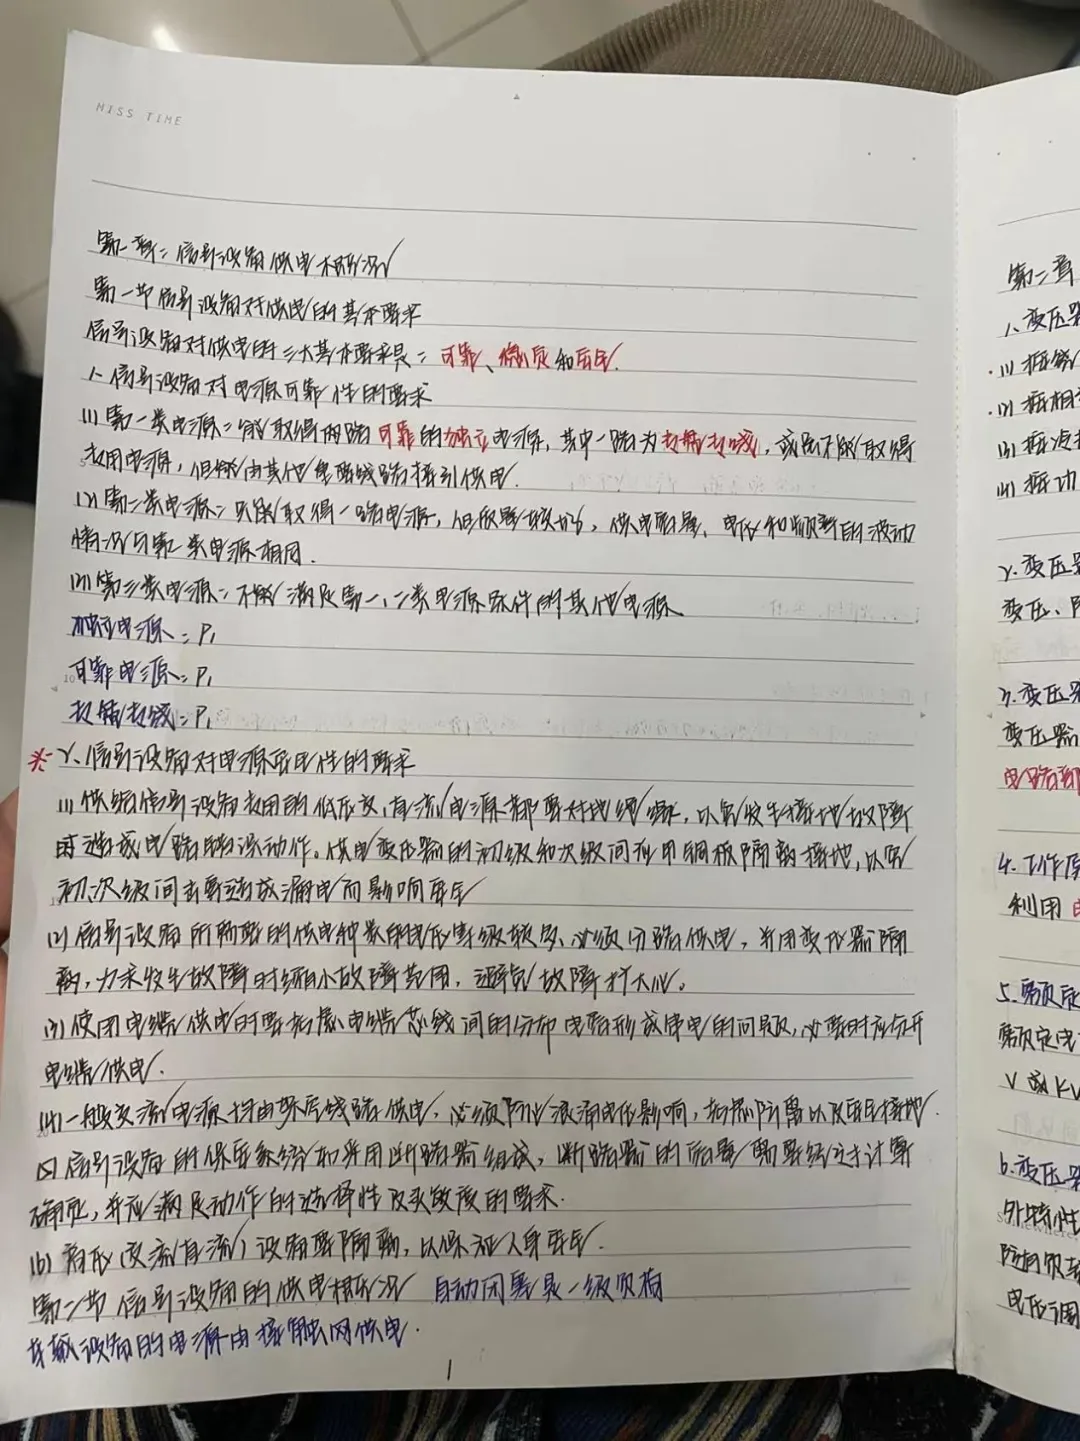 MISS TIME
第一章：信号设备供电概况
第一节 信号设备对供电的基本要求
信号设备对供电的三大基本要求是：可靠、稳定和安全.
1、信号设备对电源可靠性的要求
(1)第一类电源：能取得两路可靠的独立电源，其中一路为专盘专线，或虽不能取得
专用电源，但能由其他 线路接引供电.
(2)第二类电源：只能取得一路电源，但质量较好，供电容量、电压和频率的波动
情况与第一类电源相同.
(3)第三类电源：不能满足第一、二类电源条件的其他电源.
独立电源：P1
可靠电源：P1
专盘专线：P1
2、信号设备对电源安全性的要求
(1)供给信号设备专用的低压交、直流电源都要对地绝缘，以免发生接地故障
时造成电路错误动作。供电变压器的初级和次级间应用铜板隔离接地，以免
初次级间击穿造成漏电而影响安全
(2)信号设备所需要的供电种类和电压等级较多、必须分路供电，并用变压器隔
离，力求发生故障时缩小故障范围，避免故障扩大化。
(3)使用电缆供电时要考虑电缆芯线间的分布电容形成串电的问题，必要时应分开
电缆供电.
(4)一般交流电源均由架空线路供电，必须防止浪涌电压影响，考虑防雷以及安全接地.
信号设备的保安系统如采用断路器组成，断路器的容量需要经过计算
确定，并应满足动作的选择性及灵敏度的要求.
(6)高压(交流直流)设备要隔离，以保证人身安全.
第二节 信号设备的供电概况 自动闭塞是一级负荷
车载设备的电源由接触网供电.
1
第二章
1、变压器
2、变压器
变压、
3、变压器
变压器
电路
4、工作原
利用
5、额定
额定电
V或KV
6、变压器
外特性